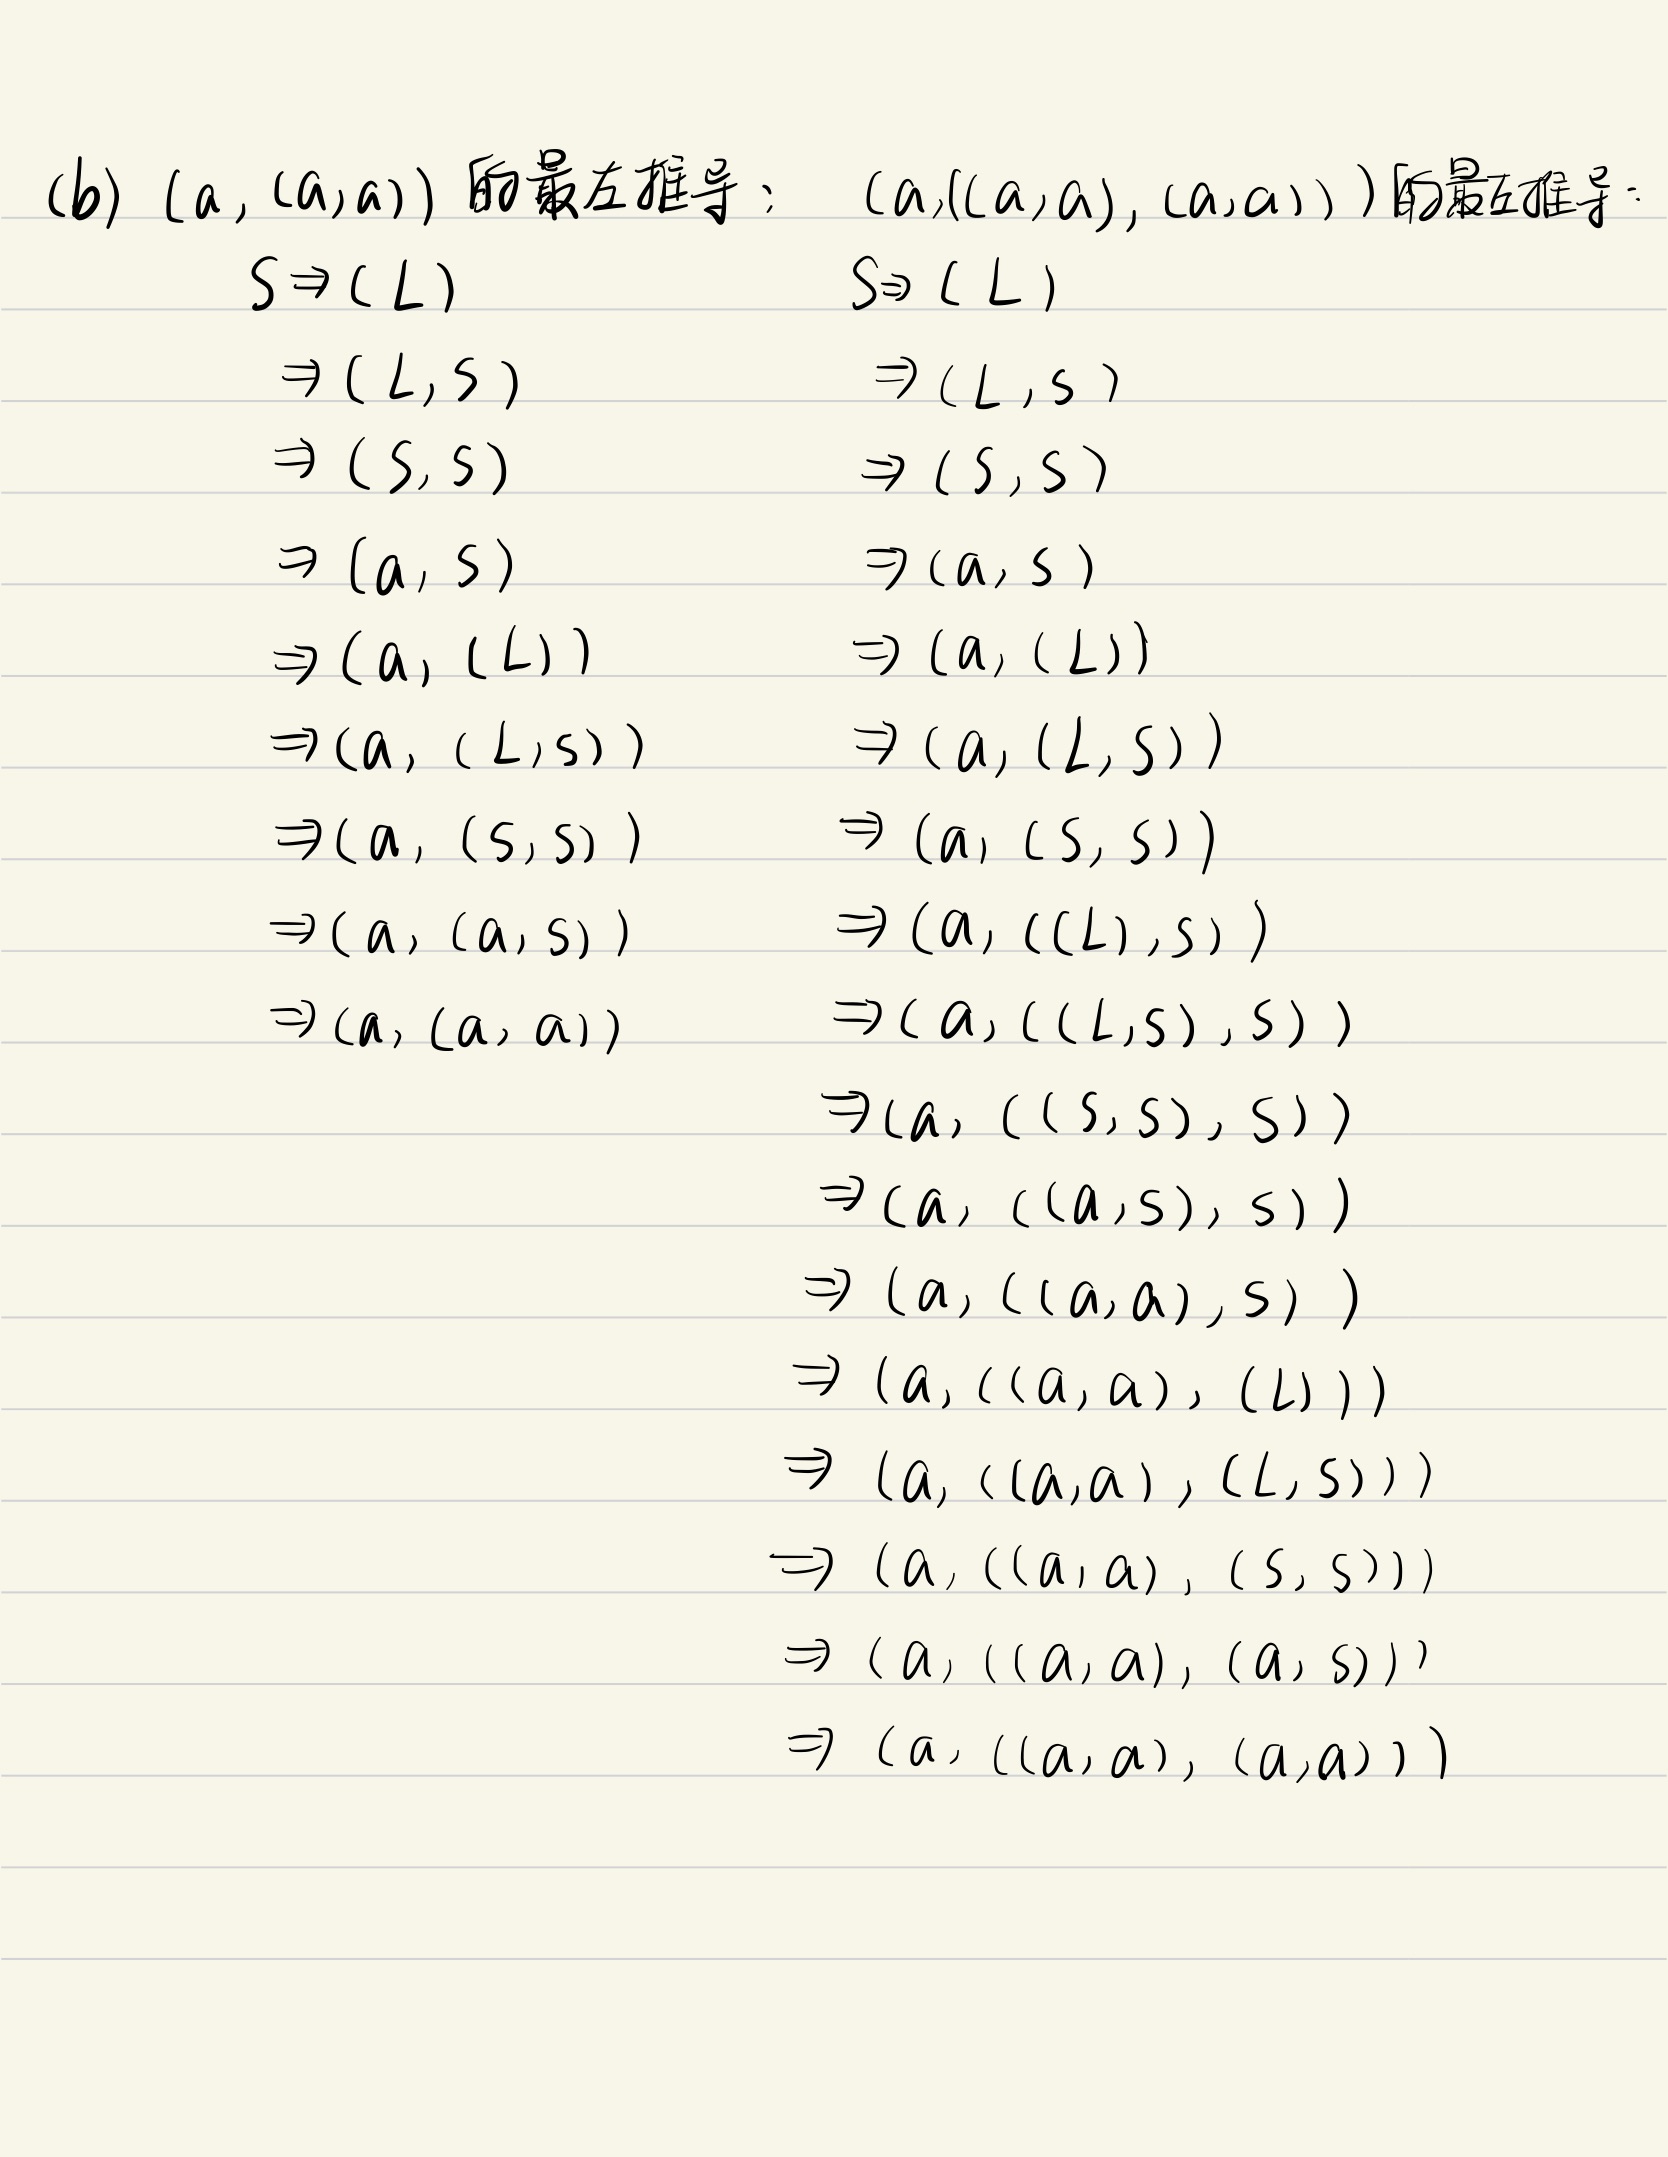 (b) (a, (a,a)) 的最左推导:
S⇒(L)
⇒(L,S)
⇒(S,S)
⇒(a,S)
⇒(a,(L))
⇒(a,(L,S))
⇒(a,(S,S))
⇒(a,(a,S))
⇒(a,(a,a))
(a,((a,a),(a,a)))的最左推导:
S⇒(L)
⇒(L,S)
⇒(S,S)
⇒(a,S)
⇒(a,(L))
⇒(a,(L,S))
⇒(a,(S,S))
⇒(a,((L),S))
⇒(a,((L,S),S))
⇒(a,((S,S),S))
⇒(a,((a,S),S))
⇒(a,((a,a),S))
⇒(a,((a,a),(L)))
⇒(a,((a,a),(L,S)))
⇒(a,((a,a),(S,S)))
⇒(a,((a,a),(a,S)))
⇒(a,((a,a),(a,a)))